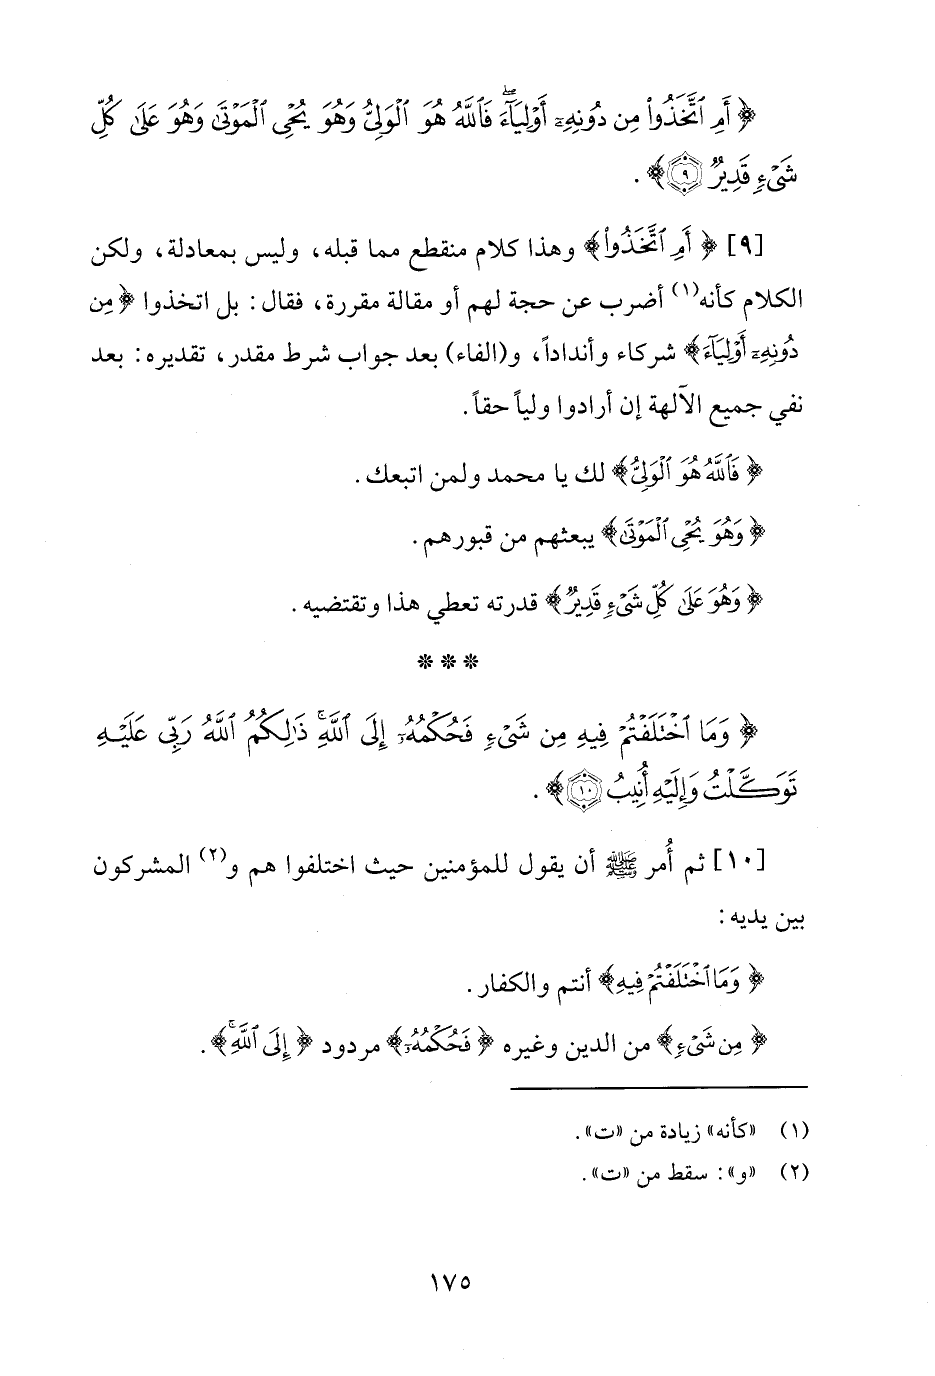 ﴿ أَمِ ٱتَّخَذُوا۟ مِن دُونِهِۦٓ أَوْلِيَآءَ ۖ فَٱللَّهُ هُوَ ٱلْوَلِىُّ وَهُوَ يُحْىِ ٱلْمَوْتَىٰ وَهُوَ عَلَىٰ كُلِّ
شَىْءٍ قَدِيرٌ ٩ ﴾ .
[٩] ﴿ أَمِ ٱتَّخَذُوا۟ ﴾ وهذا كلام منقطع مما قبله، وليس بمعادلة، ولكن
الكلام كأنه(١) أضرب عن حجة لهم أو مقالة مقررة، فقال: بل اتخذوا ﴿ مِن
دُونِهِۦٓ أَوْلِيَآءَ ﴾ شركاء وأنداداً، و(الفاء) بعد جواب شرط مقدر، تقديره: بعد
نفي جميع الآلهة إن أرادوا ولياً حقاً.
﴿ فَٱللَّهُ هُوَ ٱلْوَلِىُّ ﴾ لك يا محمد ولمن اتبعك.
﴿ وَهُوَ يُحْىِ ٱلْمَوْتَىٰ ﴾ يبعثهم من قبورهم.
﴿ وَهُوَ عَلَىٰ كُلِّ شَىْءٍ قَدِيرٌ ﴾ قدرته تعطي هذا وتقتضيه.
* * *
﴿ وَمَا ٱخْتَلَفْتُمْ فِيهِ مِن شَىْءٍ فَحُكْمُهُۥٓ إِلَى ٱللَّهِ ۚ ذَٰلِكُمُ ٱللَّهُ رَبِّى عَلَيْهِ
تَوَكَّلْتُ وَإِلَيْهِ أُنِيبُ ١٠ ﴾ .
[١٠] ثم أُمر ﷺ أن يقول للمؤمنين حيث اختلفوا هم و(٢) المشركون
بين يديه:
﴿ وَمَا ٱخْتَلَفْتُمْ فِيهِ ﴾ أنتم والكفار.
﴿ مِن شَىْءٍ ﴾ من الدين وغيره ﴿ فَحُكْمُهُۥٓ ﴾ مردود ﴿ إِلَى ٱللَّهِ ۚ ﴾ .
(١) «كأنه» زيادة من «ت».
(٢) «و»: سقط من «ت».
١٧٥